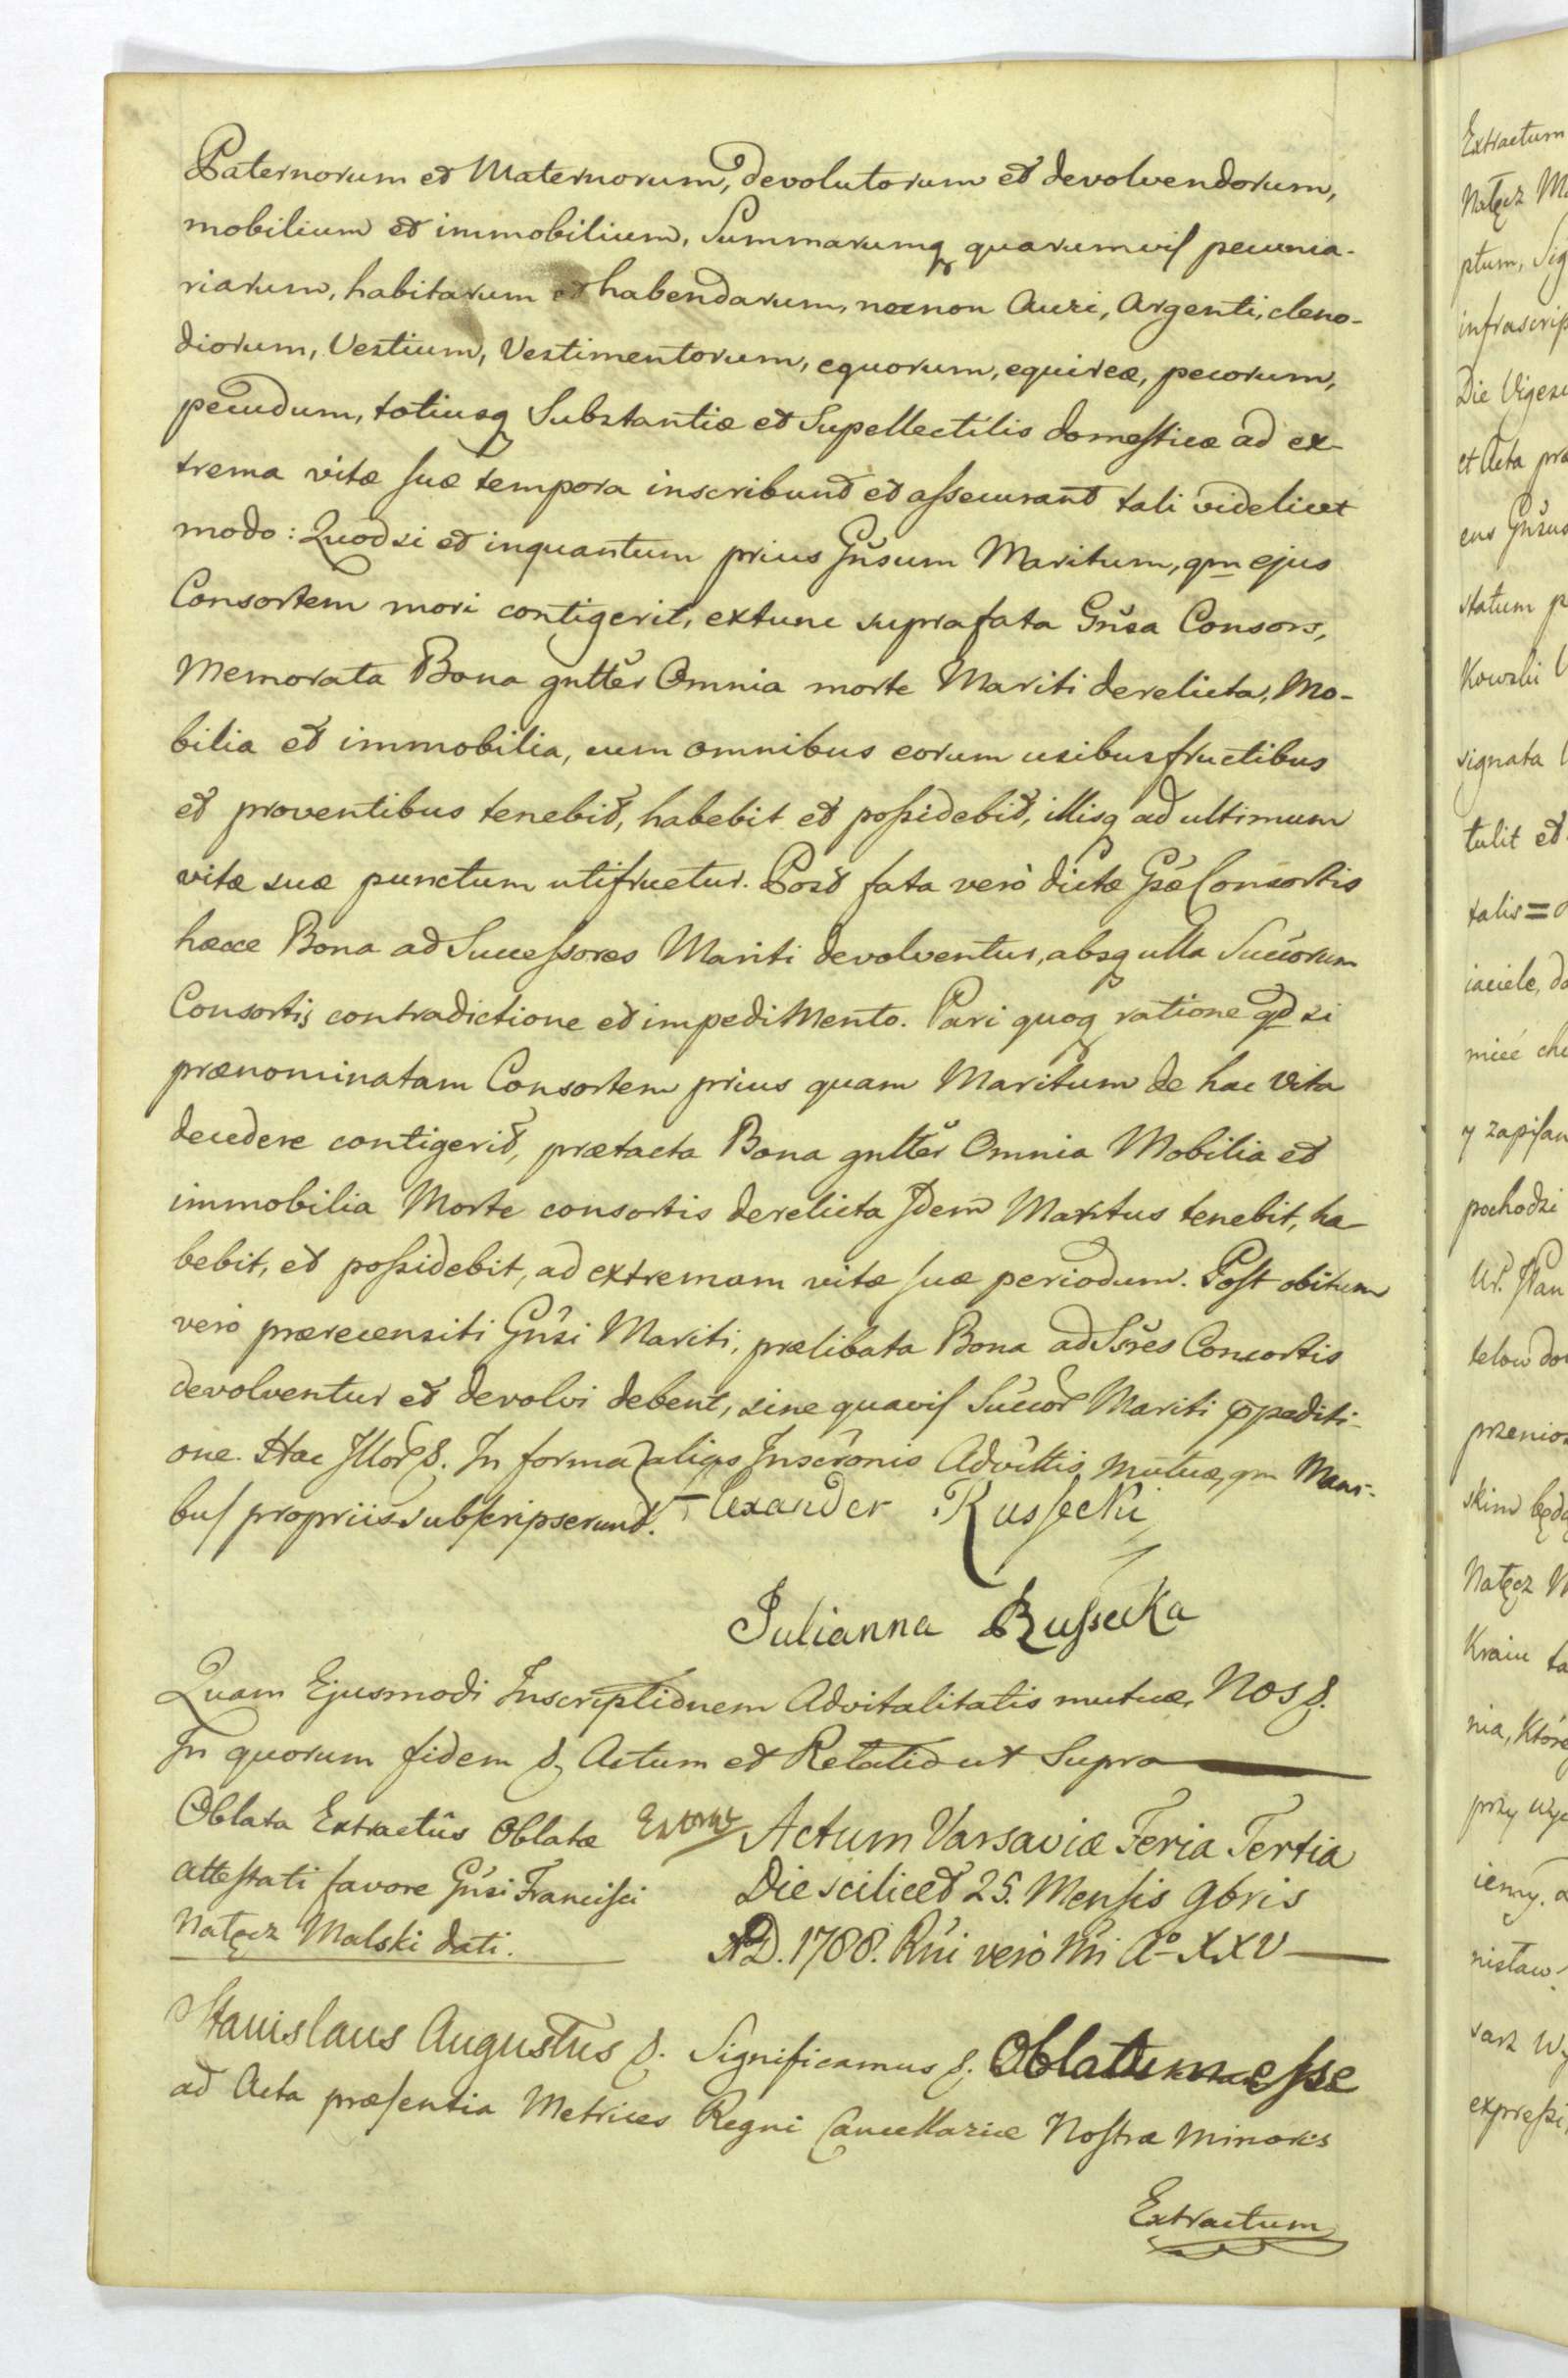 Paternorum et Maternorum, devolutorum et devolvendorum,
mobilium et immobilium, Summarumq quarumvis pecunia-
riarum, habitarum et habendarum, necnon Auri, Argenti, cleno-
diorum, Vestium, Vestimentorum, equorum, equireæ, pecorum,
pecudum, totiusq Substantiæ et Supellectilis domesticæ ad ex-
trema vitæ suæ tempora inscribunt et assecurant tali videlicet
modo: Quodsi et inquantum prius Gñsum Maritum, qm ejus
Consortem mori contigerit, extunc suprafata Gñsa Consors,
Memorata Bona gnltër Omnia morte Mariti derelicta, Mo-
bilia et immobilia, cum omnibus eorum usibusfructibus
et proventibus tenebit, habebit et possidebit, illisq ad ultimum
vitæ suæ punctum utifruetur. Post fata verò dictæ Gsæ Consortis
hæcce Bona ad Successores Mariti devolventur, absq ulla Succorum
Consortis contradictione et impediMento. Pari quoq ratione qd si
prænominatam Consortem prius quam Maritum de hac Vita
decedere contigerit, prætacta Bona gnltër Omnia Mobilia et
immobilia Morte consortis derelicta Idem Maritus tenebit, ha-
bebit, et possidebit, ad extremam vitæ suæ periodum. Post obitum
verò prærecensiti Gñsi Mariti, prælibata Bona ad Ssres Consortis
devolventur et devolvi debent, sine quavis Succor Mariti ppediti-
one. Hac Illor &. In forma aliqs Inscronis Advittis mutuæ, qm Mani-
bus propriis subscripserunt. Alexander Russecki
Julianna Russecka
Quam Ejusmodi Inscriptionem Advitalitatis mutuæ, Nos &.
In quorum fidem &. Actum et Relatio ut Supra
Oblata Extractûs Oblatæ
attestati favore Gñsi Francisci
Nałęcz Malski dati.
Actum Varsaviæ Feria Tertia
Die scilicet 25. Mensis 9bris
AD. 1788. Rñi verò Nri Aº XXV
Stanislaus Augustus &. Significamus &. Oblatum esse
ad Acta præsentia Metrices Regni Cancellariæ Nostræ Minoris
Extractum
Extractum
Nałęcz Ma
ptum, Sig
infrascrip
Die Vigesi
et Acta præ
ens Gñsus
statum p
Kowski
signata
tulit et
talis =
iaciele, do
mieć che
y zapisan
pochodzi
Ur. Stan
telow do
przenios
skim będą
Nałęcz M
Kraiu ta
nia, Które
przy wy
iemy.
nisław
sarz w
expressi